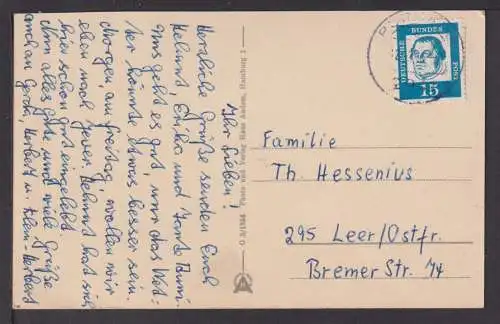 Ihr Lieben!
Herzliche Grüße senden Euch
Helmut, Erika und Tante Mimi.
Uns geht es gut, nur das Wet-
ter könnte etwas besser sein.
Morgen, am Freitag, wollen wir
eben nach Jever. Helmut hat sich
hier schon gut eingelebt.
Nun alles gute und viele Grüße
auch an Gerda, Herbert u. klein-Herbert
Photo und Verlag Hans Andres, Hamburg 1
DEUTSCHE BUNDES POST
15
Familie
Th. Hessenius
295 Leer/Ostfr.
Bremer Str. 74